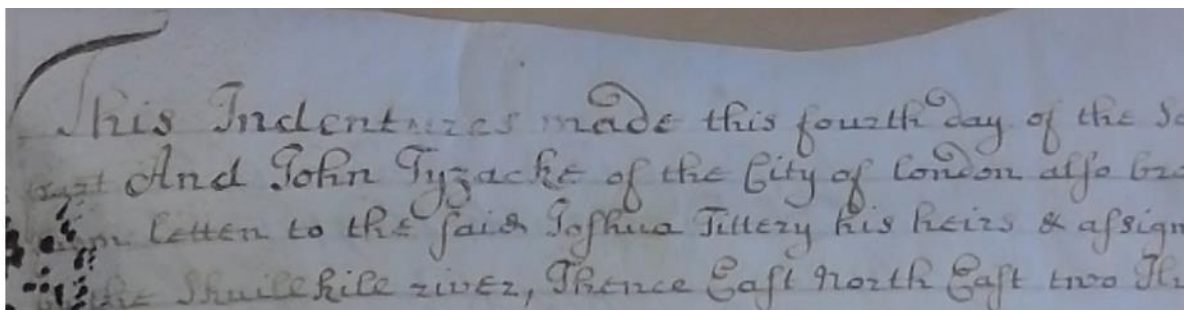 This Indentures made this fourth day of the
And John Tyzacke of the City of London also
Letten to the said Joshua Tittery his heirs & assign
the Skuilekile river, Thence East North East two